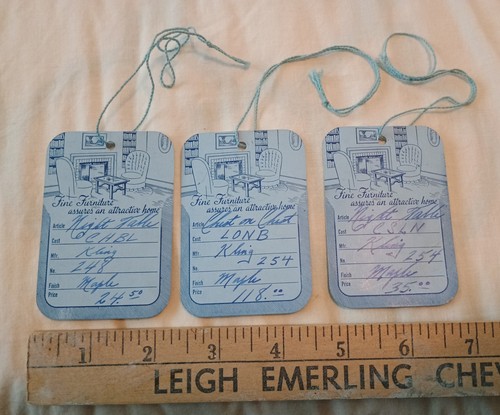 Fine Furniture
assures an attractive home
Article Night Table
Cost CHBL
Mfr. Kling
No. 248
Finish Maple
Price 24.50
Fine Furniture
assures an attractive home
Article Chest on Chest
Cost LONB
Mfr. Kling
No. 254
Finish Maple
Price 118.00
Fine Furniture
assures an attractive home
Article Night Table
Cost CSLN
Mfr. Kling
No. 254
Finish Maple
Price 35.00
1 2 3 4 5 6 7
LEIGH EMERLING CHEV